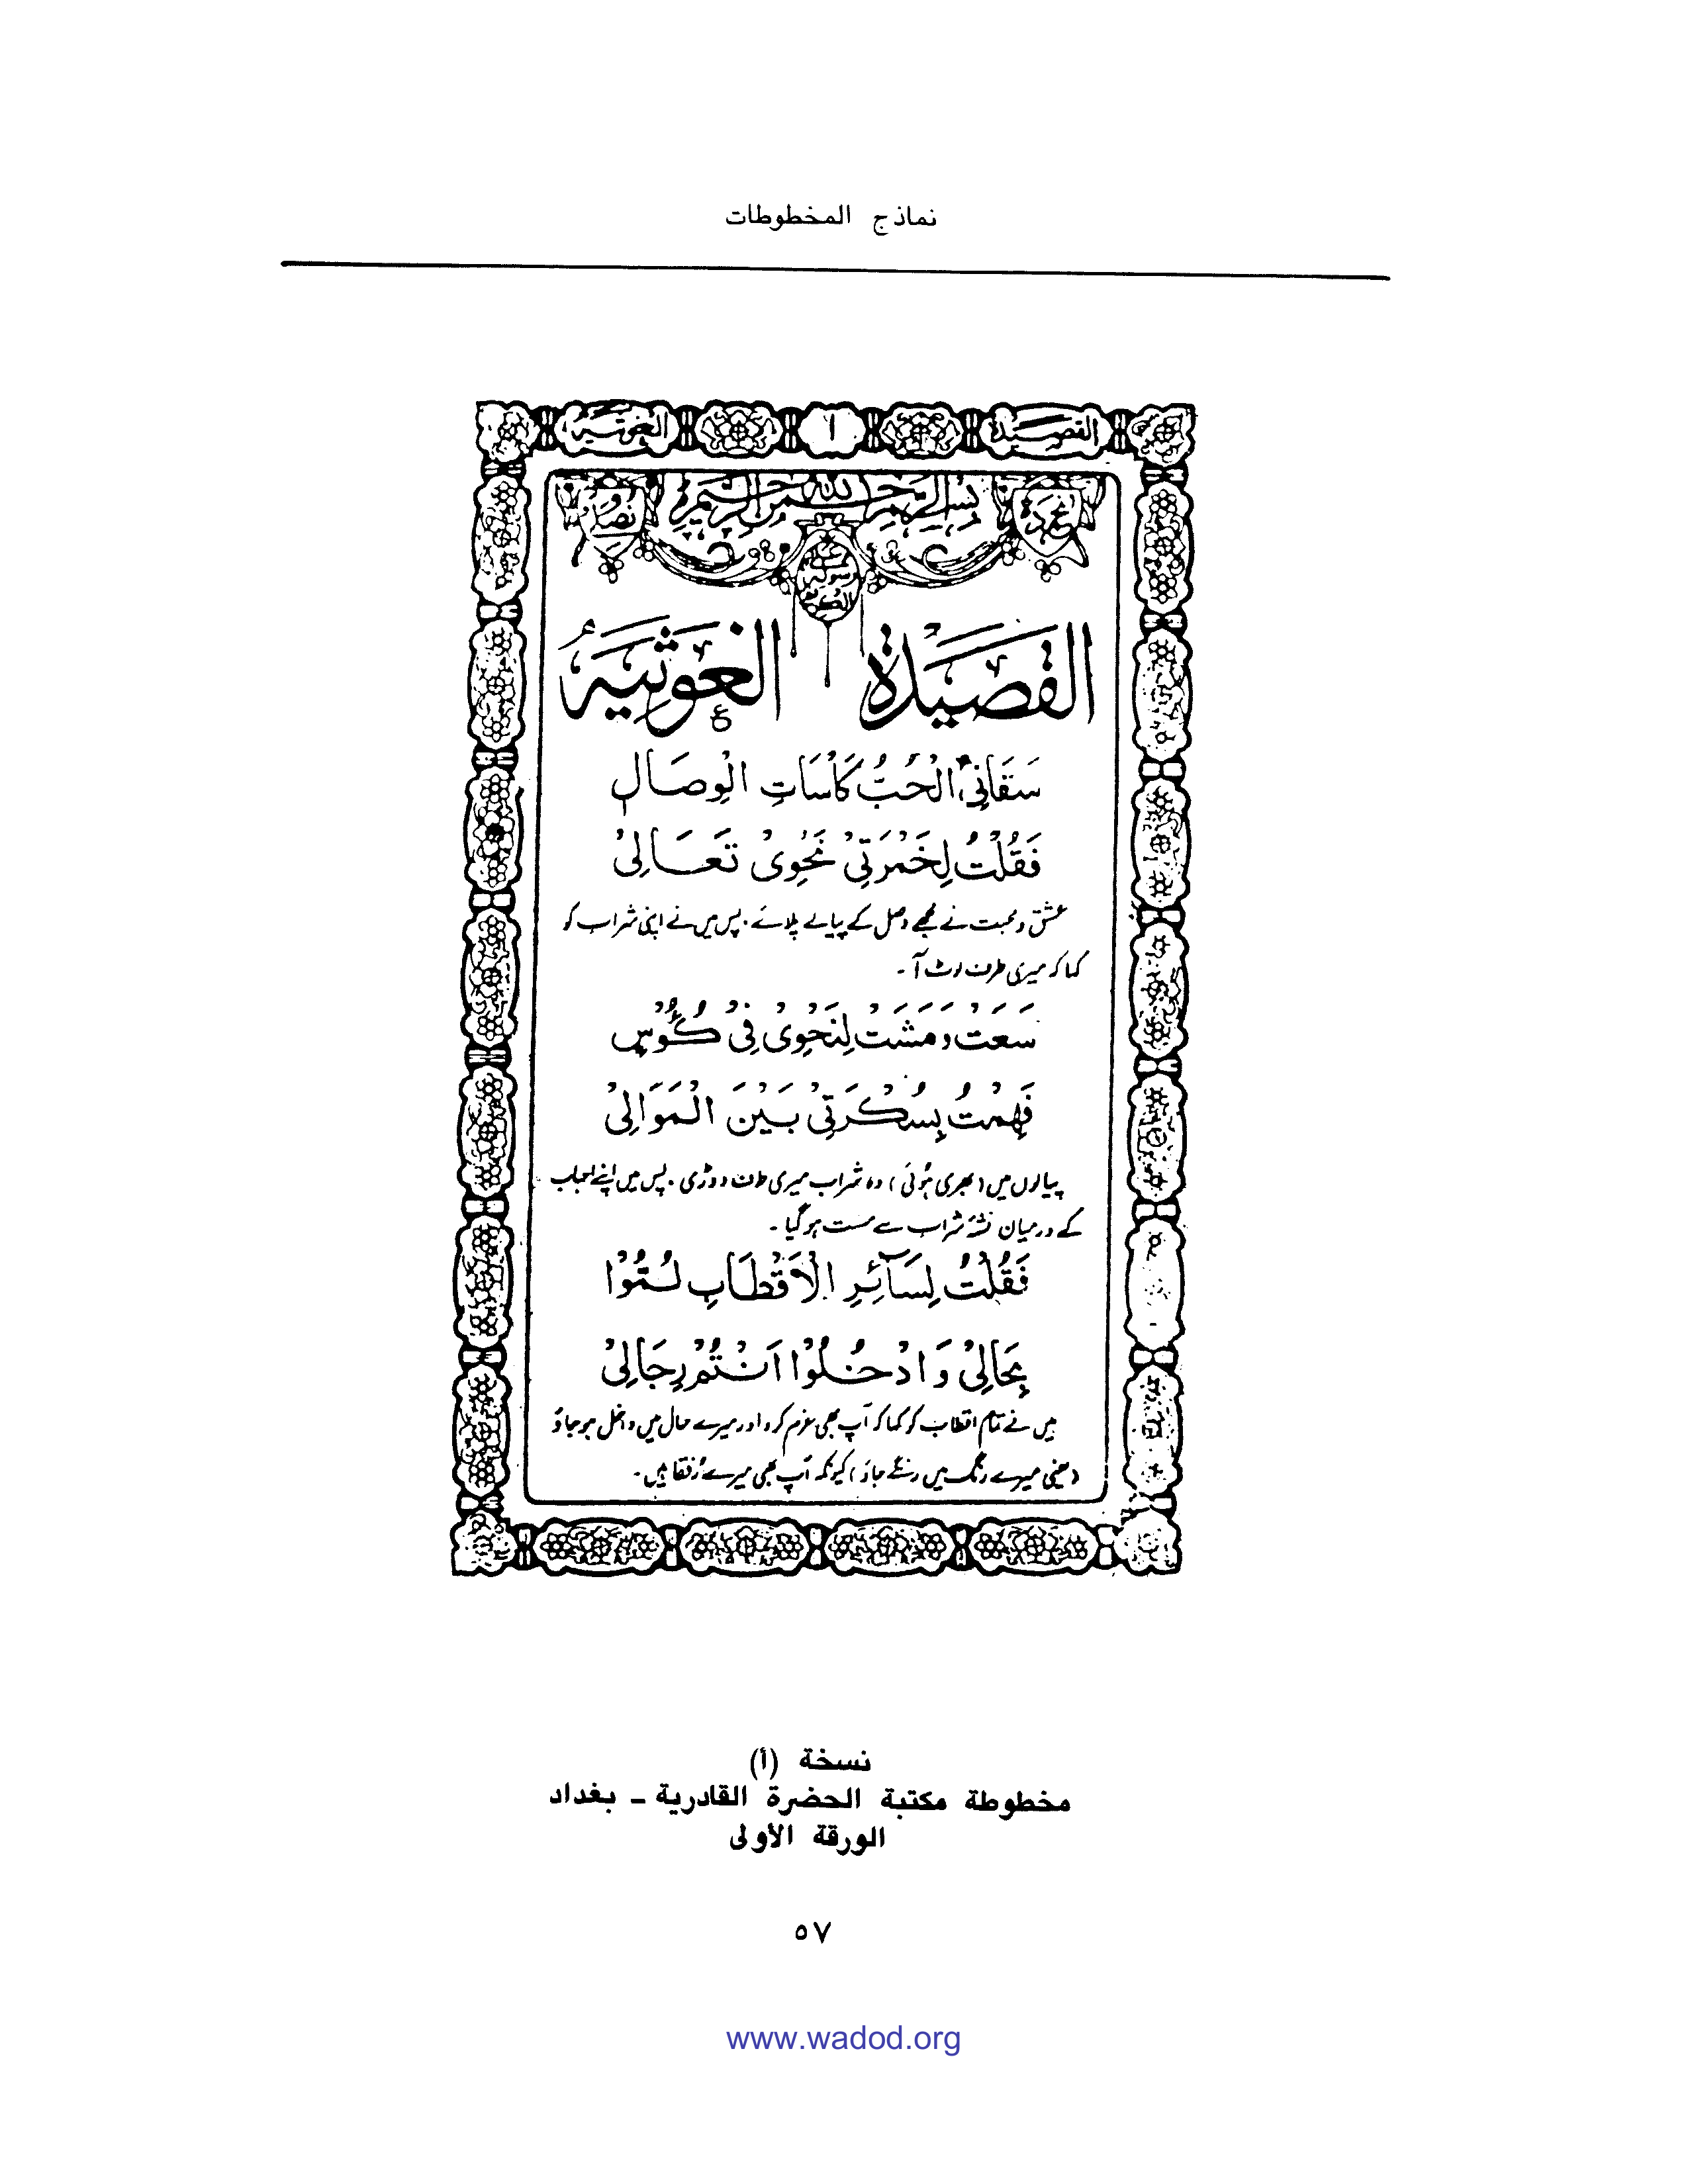 نماذج المخطوطات
القصيدة ١ الغوثية
بسم الله الرحمن الرحيم
القصيدة الغوثية
سَقَانِي الْحُبُّ كَاْسَاتِ الْوِصَالِ
فَقُلْتُ لِخَمْرَتِيْ نَحْوِيْ تَعَالِيْ
عشق و محبت نے مجھے وصل کے پیالے پلائے۔ پس میں نے اپنی شراب کو
کہا کہ میری طرف لوٹ آ۔
سَعَتْ وَمَشَتْ لِنَحْوِيْ فِيْ كُئُوْسٍ
فَهِمْتُ بِسُكْرَتِيْ بَيْنَ الْمَوَالِيْ
پیالوں میں (بھری ہوئی) وہ شراب میری طرف دوڑی۔ پس میں اپنے احباب
کے درمیان نشۂ شراب سے مست ہو گیا۔
فَقُلْتُ لِسَآئِرِ الْاَقْطَابِ لُمُّوْا
بِحَالِيْ وَادْخُلُوْا اَنْتُمْ رِجَالِيْ
میں نے تمام اقطاب کو کہا کہ آپ بھی عزم کرو اور میرے حال میں داخل ہو جاؤ
(یعنی میرے رنگ میں رنگے جاؤ) کیونکہ آپ بھی میرے رُفقا ہیں۔
نسخة (أ)
مخطوطة مكتبة الحضرة القادرية – بغداد
الورقة الأولى
٥٧
www.wadod.org